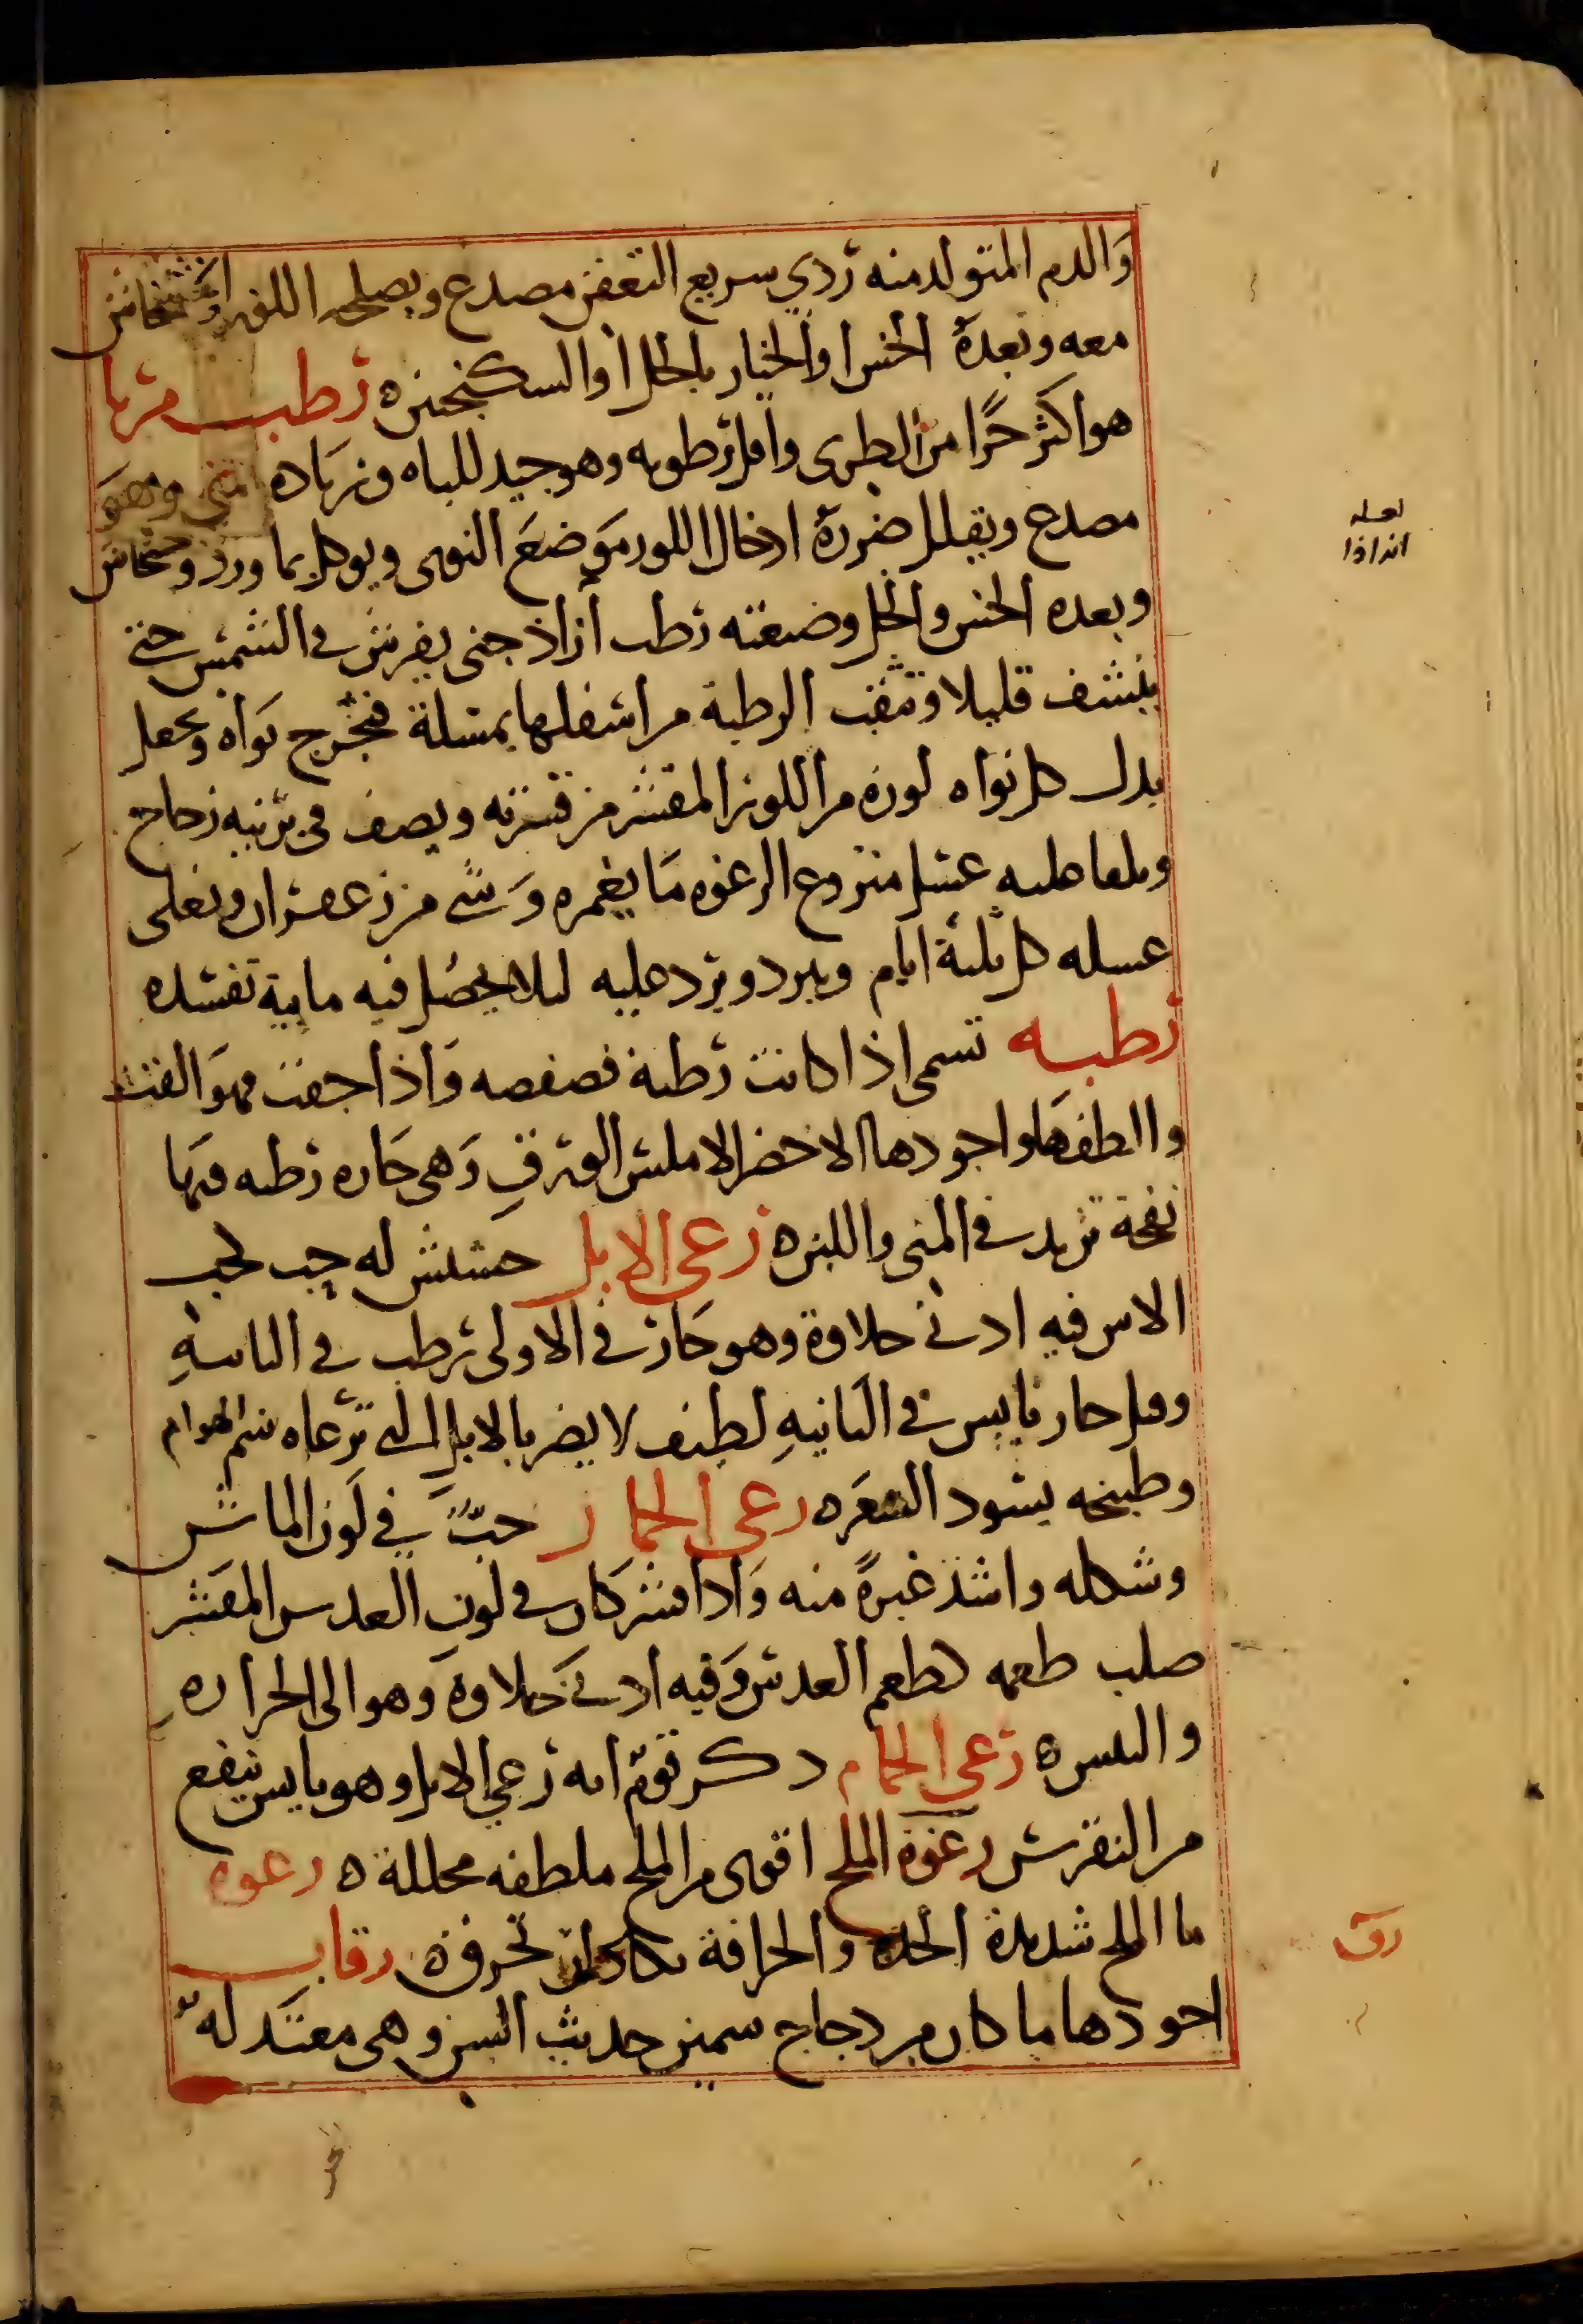 والدم المتولد منه ردي سريع التعفن مصدع ويصلحه اللوز او خشخاش
معه وبعدهُ الخس او الخيار بالخل او السكنجبين ه رطب مربا
هو اكثر حرًا من الطري واقل رطوبه وهو جيد للباه وزياده المني وهو
مصدع ويقلل ضررهُ ادخال اللوز موضع النوى ويوكل بماورد وخشخاش
وبعده الخس والخل وصنعته رطب ازاذ جنى يفرش في الشمس حتى
ينشف قليلا وتثقب الرطبة من اسفلها بمسلة فيخرج نواه ويجعل
بدل كل نواه لوزه من اللوز المقشر من قشرته ويصف في برنيه زجاج
ويلقا عليه عسل منزوع الرغوه ما يغمره وشي من زعفران ويغلى
عسله كل ثلثة ايام ويبرد ويرد عليه ليلا يحصل فيه مايية تفسده
رطبه تسمى اذا كانت رطبة فصفصه واذا جفت فهو القت
والطفها واجودها الاخضر الاملس الورق وهى حاره رطبه فيها
نفخة تزيد في المنى واللبن ه رعى الابل حشيش له حب كحب
الاس فيه ادنى حلاوة وهو حار في الاولى رطب في الثانيه
وقيل حار يابس في الثانيه لطيف لا يضر بالابل التي ترعاه سم الهوام
وطبيخه يسود الشعر ه رعى الحمار حبٌّ في لون الماش
وشكله واشد غبرةً منه واذا قشر كان في لون العدس المقشر
صلب طعمه كطعم العدس وفيه ادنى حلاوة وهو الى الحراره
واليبس ه رعى الحمام ذكر قوم انه رعي الابل وهو يابس ينفع
من النقرس رغوة الملح اقوى من الملح ملطفه محللة ه رغوه
ما الملح شديدة الحده والحرافة تكاد ان تحرق ه رقاب
اجودها ما كان من دجاج سمين حديث السن وهى معتدله
لعله
انه اذا
رق